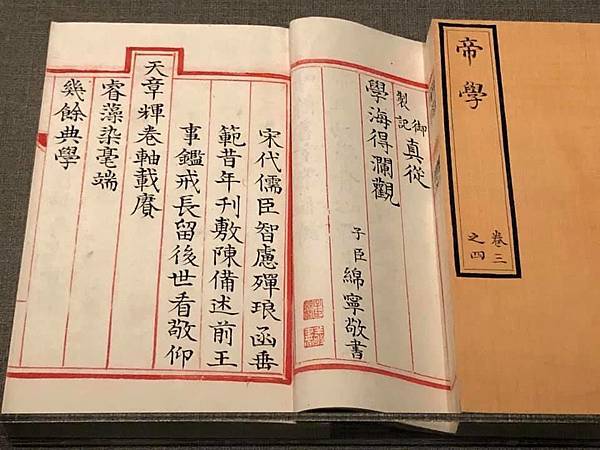 帝學
卷三
之四
御製記真從
學海得瀾觀
子臣綿寧敬書
宋代儒臣智慮殫琅函垂
範昔年刊敷陳備述前王
事鑑戒長留後世看敬仰
天章輝卷軸載賡
睿藻染毫端
幾餘典學